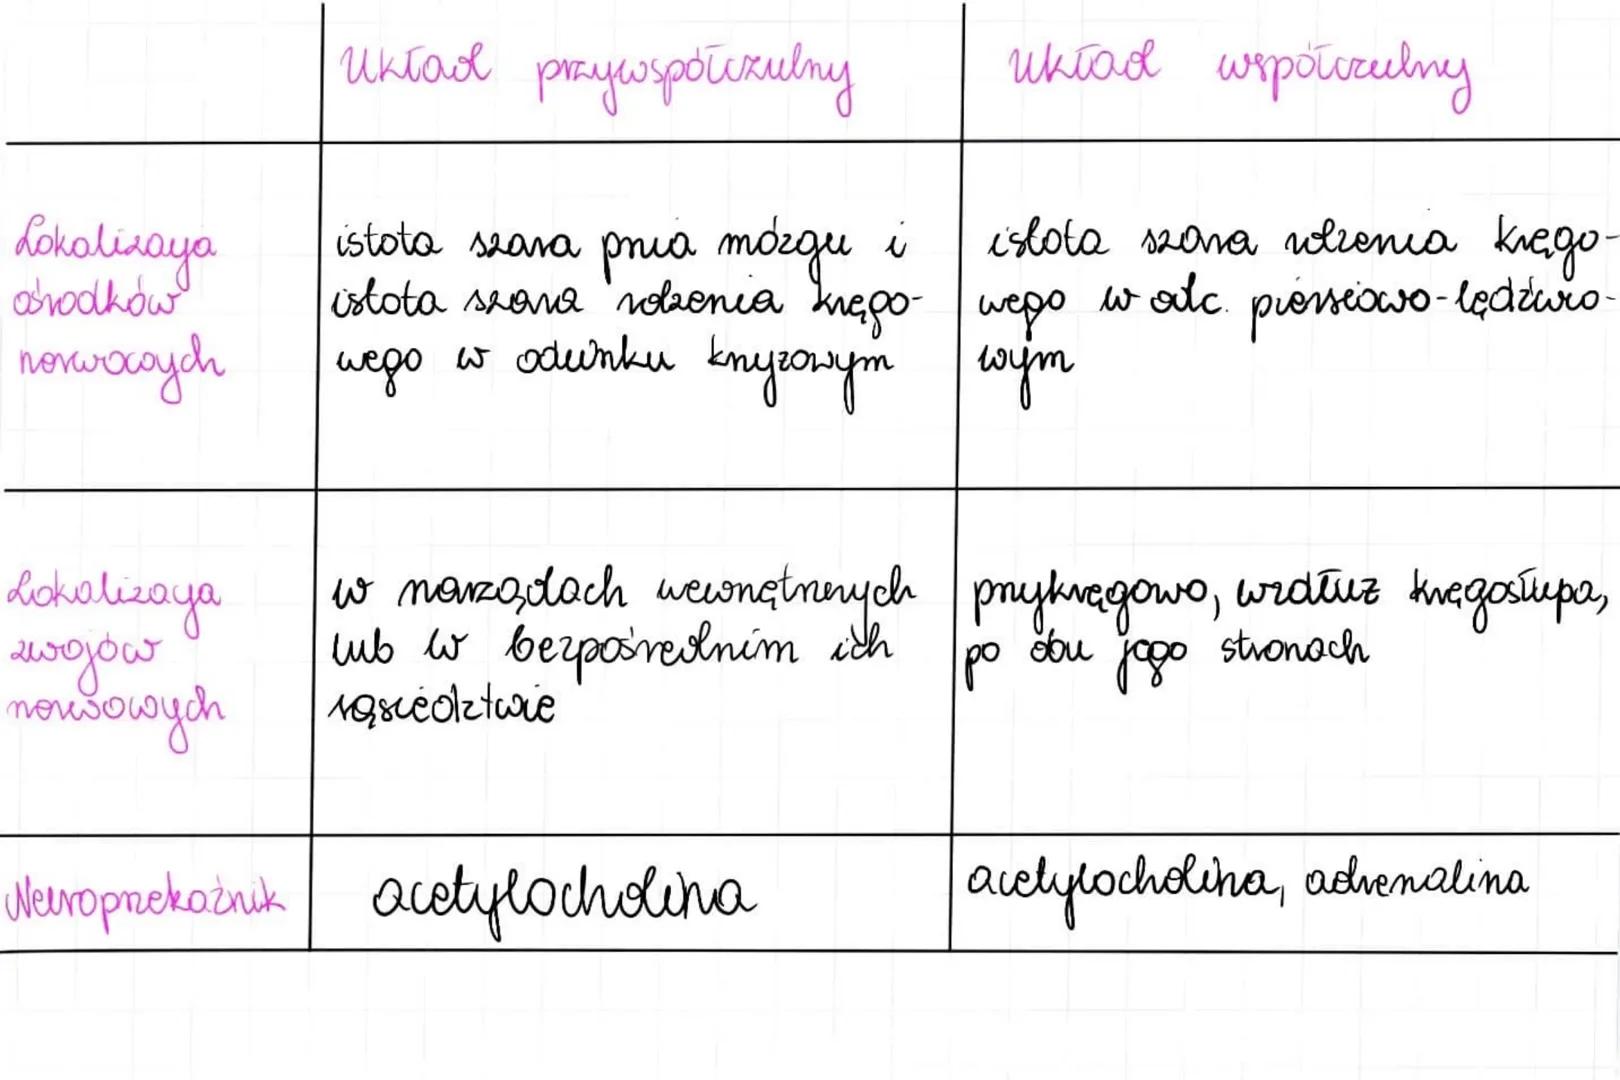 Układ przywspółczulny
Układ współczulny
Lokalizacja
ośrodków
nerwowych
istota szara pnia mózgu i
istota szara rdzenia kręgo-
wego w odcinku krzyżowym
istota szara rdzenia kręgo-
wego w odc. piersiowo-lędźwio-
wym
Lokalizacja
zwojów
nerwowych
w narządach wewnętrznych
lub w bezpośrednim ich
sąsiedztwie
przykręgowo, wzdłuż kręgosłupa,
po obu jego stronach
Neuroprzekaźnik
acetylocholina
acetylocholina, adrenalina